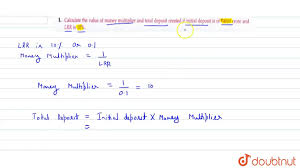 1. Calculate the value of money multiplier and total deposit created if initial deposit is of crore and
LRR is 10%.
LRR is 10% or 0.1
Money Multiplier = 1
LRR
Money Multiplier = 1 = 10
0.1
Total Deposit = Initial deposit X Money Multiplier
=
doubtnut